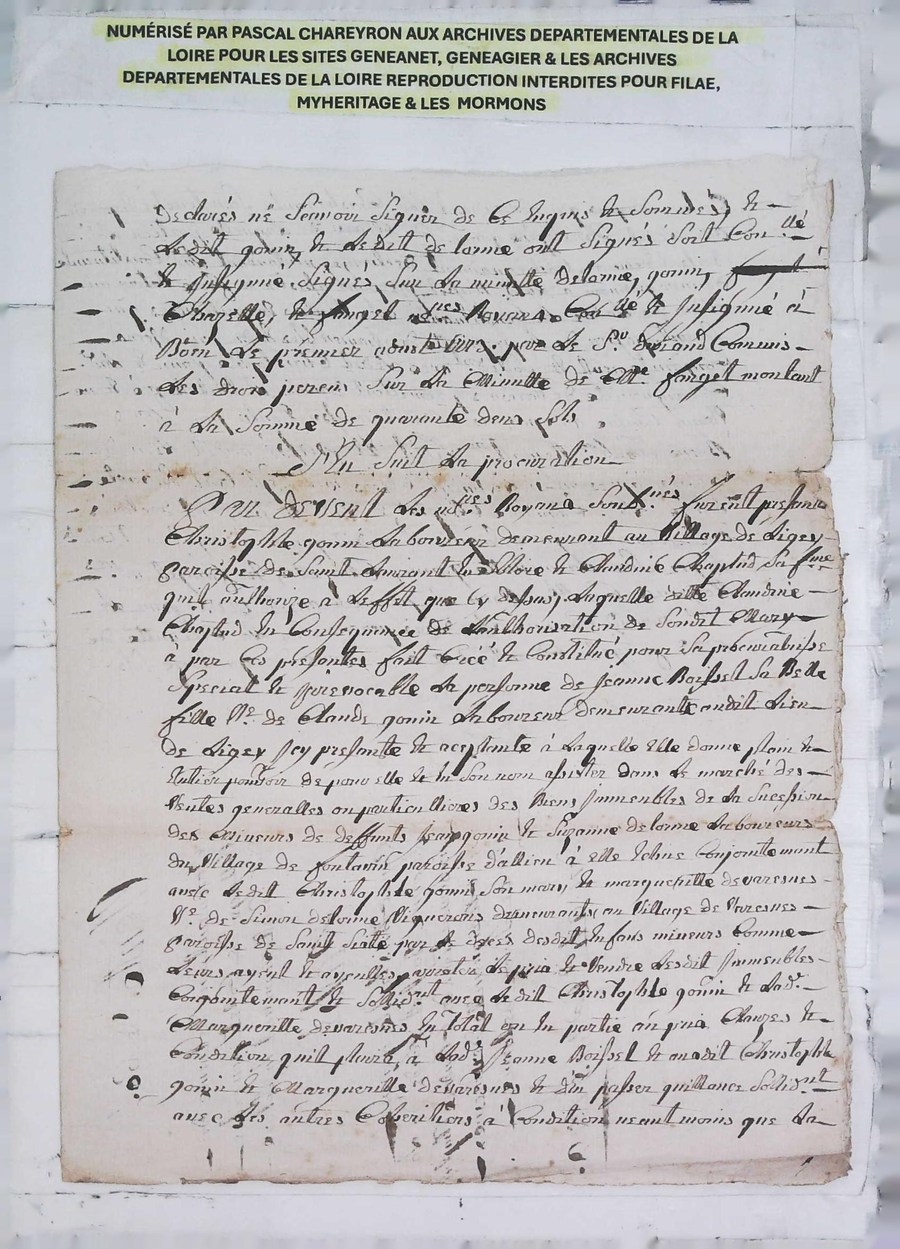 NUMÉRISÉ PAR PASCAL CHAREYRON AUX ARCHIVES DEPARTEMENTALES DE LA
LOIRE POUR LES SITES GENEANET, GENEAGIER & LES ARCHIVES
DEPARTEMENTALES DE LA LOIRE REPRODUCTION INTERDITES POUR FILAE,
MYHERITAGE & LES MORMONS
Declarés ne Scavoir Signer de Ce Enquis & Sommés, &
Ledit gonin & Ledit delorme ont Signés Soit Con llé
& Insignué Signés Sur La minutte delorme, gonin,
Chazelle, & fanget no.res Royaux Con llé & Insignué à
Boën Le premier aoust par le Sr. durand Commis
Les droits perceus Sur La Minutte de Me. fanget montant
à La Somme de quarante deux Sols
S'En Suit La procuration
Par devent Les no.res Royaux Sous.nés furent presans
Christophle gonin Laboureur demeurant au Village de Ligey
paroisse de Saint & Claudine Chaptud Sa fme
quil authorize à Leffet que Cy dessus, Laquelle ditte Claudine
Chaptud En Consequance de Lauthorisation de Sondit Mary
à par Ces presantes fait Créé & Constitué pour Sa procuratrisse
Special & Irrevocable La personne de Jeanne Boissel Sa Belle
fille Ve. de Claude gonin Laboureur demeurante audit Lieu
de Ligey Icy presante & aceptante à Laquelle Elle donne plain &
Entier pouvoir de pour elle & En Son nom assister dans Le marché des
Ventes generalles ou particullieres des Biens Immeubles de La Sucession
des mineurs de deffunts Jean gonin & Suzanne delorme Laboureurs
du Village de fontavin paroisse d'allieu à elle Echue Conjointement
avec Ledit Christophle gonin Son mary & margueritte devaresnes
Ve. de Simon delorme Vignerons demeurants au Village de Varesnes
paroisse de Sainte par Le deces desdit Enfans mineurs Comme
Leurs ayeul & ayeulles, Le prix & Vendre Lesdit Immeubles
Conjointemant & Sollid.nt avec Ledit Christophle gonin & Lad.
Marguerille devaresnes En total ou En partie au prix Clauzes &
Condition quil plaira à Lad. Jeanne Boissel & audit Christophle
gonin & Marguerille devaresnes & d'en passer quillance Solid.nt
avec Les autres Coheritiers à Condition neantmoins que La